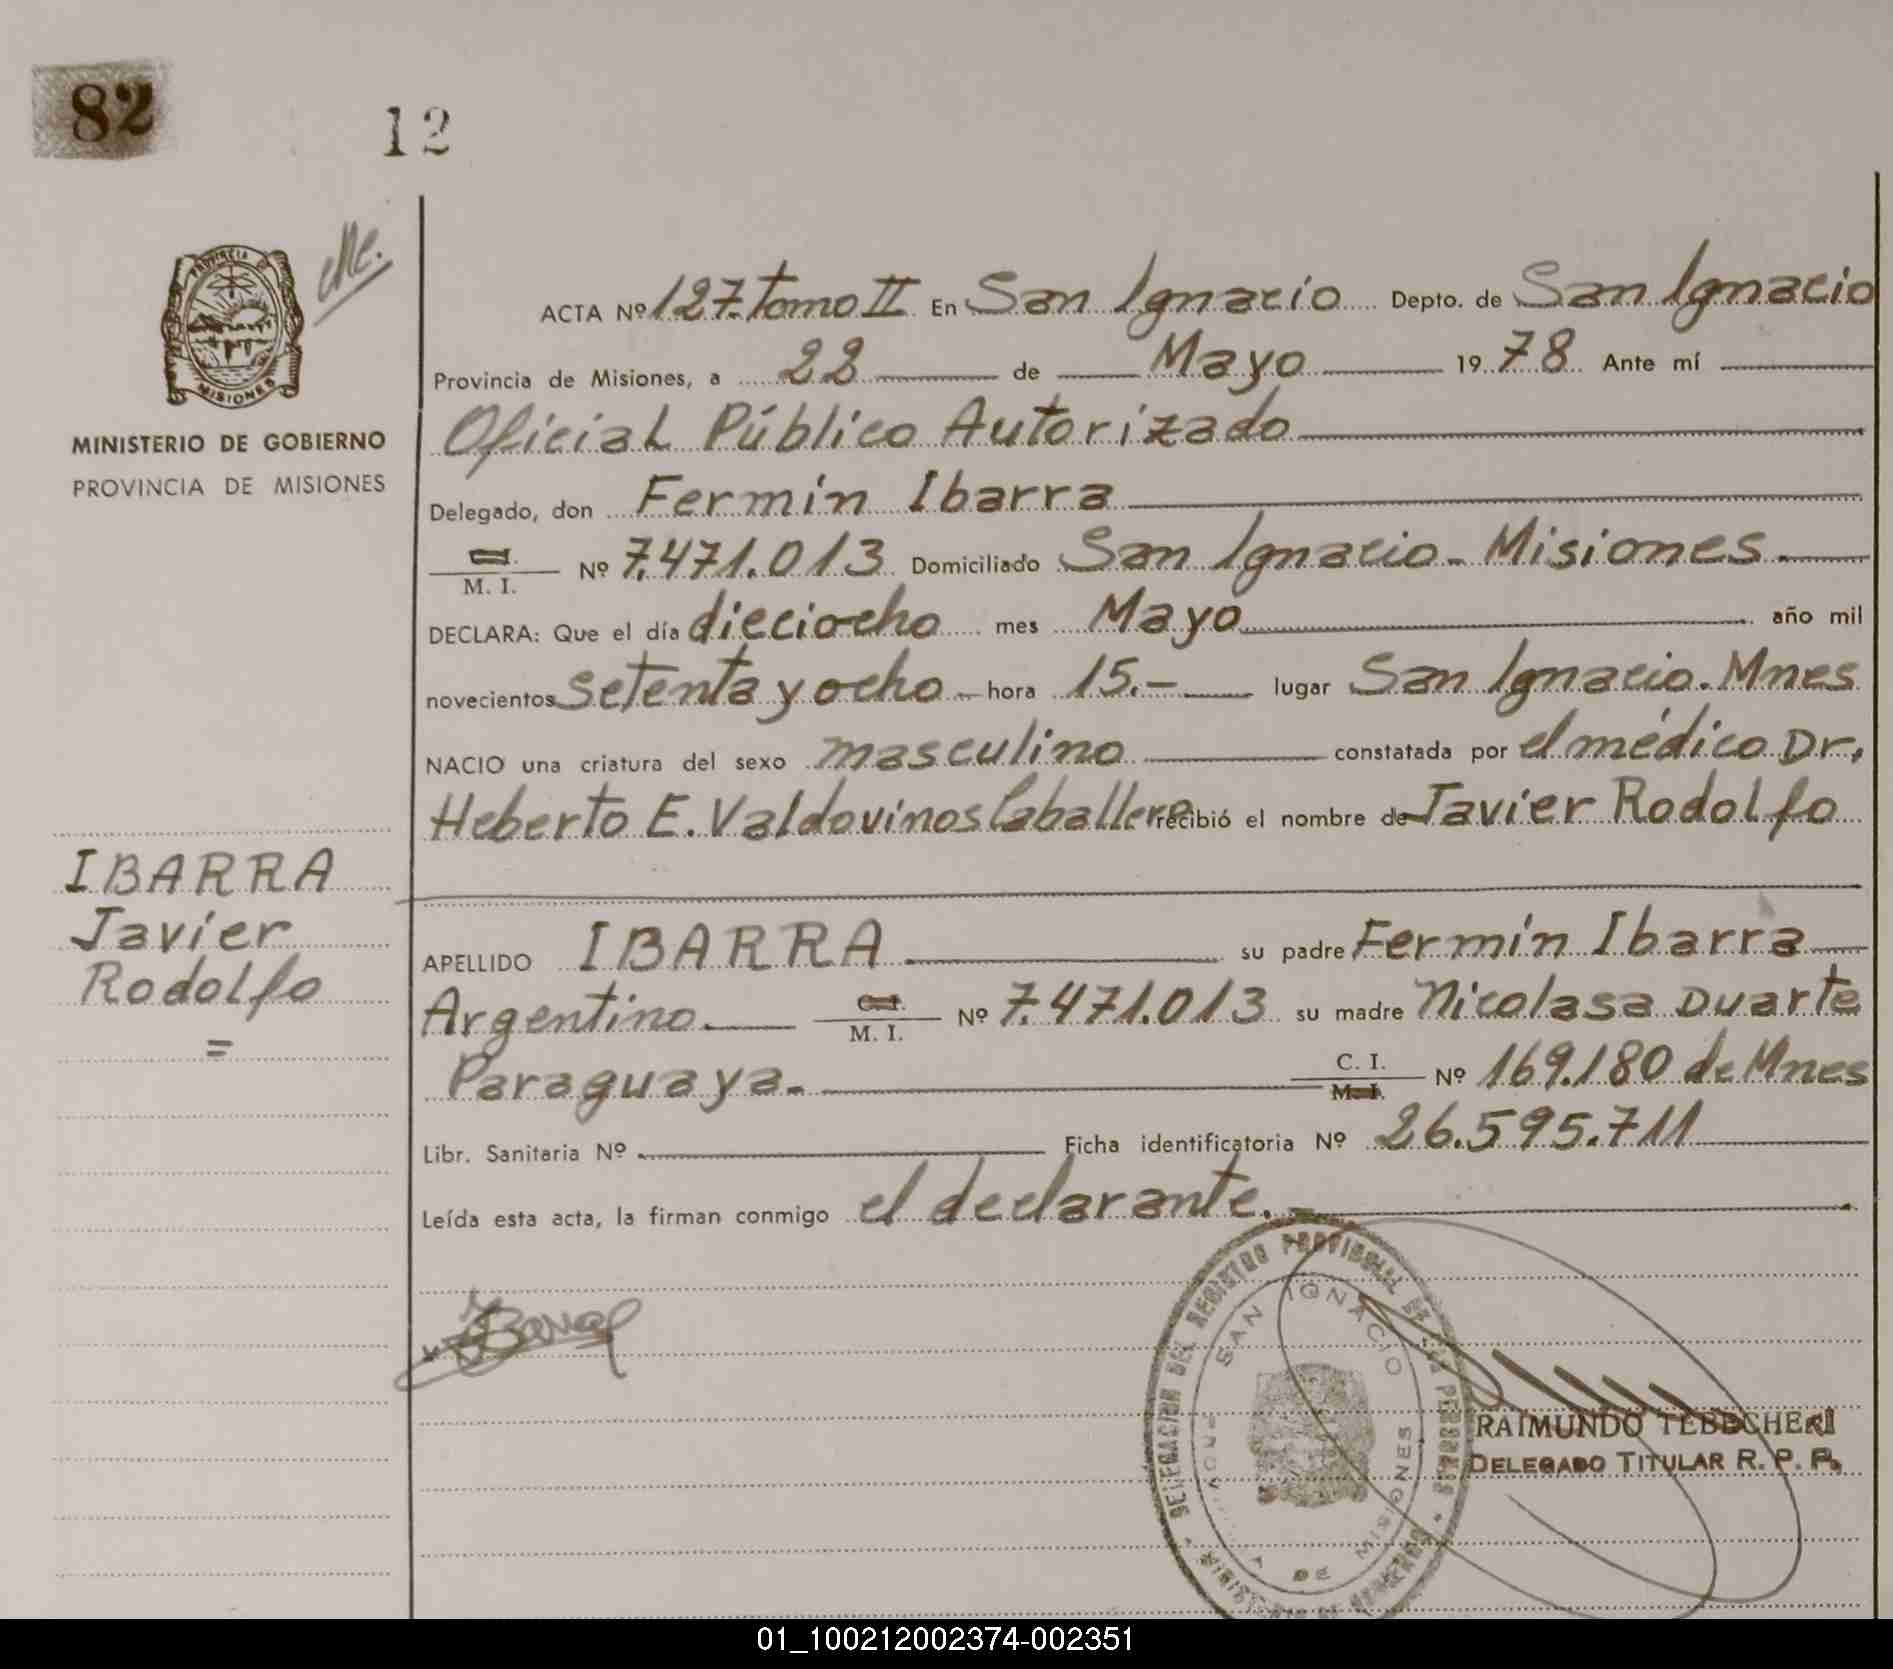 82
12
PROVINCIA DE
MISIONES
MINISTERIO DE GOBIERNO
PROVINCIA DE MISIONES
ACTA Nº 127. tomo II En San Ignacio Depto. de San Ignacio
Provincia de Misiones, a 22 de Mayo 1978 Ante mí
Oficial Público Autorizado
Delegado, don Fermín Ibarra
M. I. Nº 7.471.013 Domiciliado San Ignacio - Misiones.
DECLARA: Que el día dieciocho mes Mayo año mil
novecientos setenta y ocho hora 15.- lugar San Ignacio. Mnes
NACIO una criatura del sexo masculino constatada por el médico Dr.
Heberto E. Valdovinos Caballero recibió el nombre de Javier Rodolfo
IBARRA
Javier
Rodolfo
=
APELLIDO IBARRA su padre Fermín Ibarra
Argentino. C. I. M. I. Nº 7.471.013 su madre Nicolasa Duarte
Paraguaya. C. I. M. I. Nº 169.180 de Mnes
Libr. Sanitaria Nº Ficha identificatoria Nº 26.595.711
Leída esta acta, la firman conmigo el declarante.-
DELEGACION DEL REGISTRO PROVINCIAL DE LAS PERSONAS
SAN IGNACIO
DE MISIONES
RAIMUNDO TEBECHERI
DELEGADO TITULAR R. P. P.
01_100212002374-002351